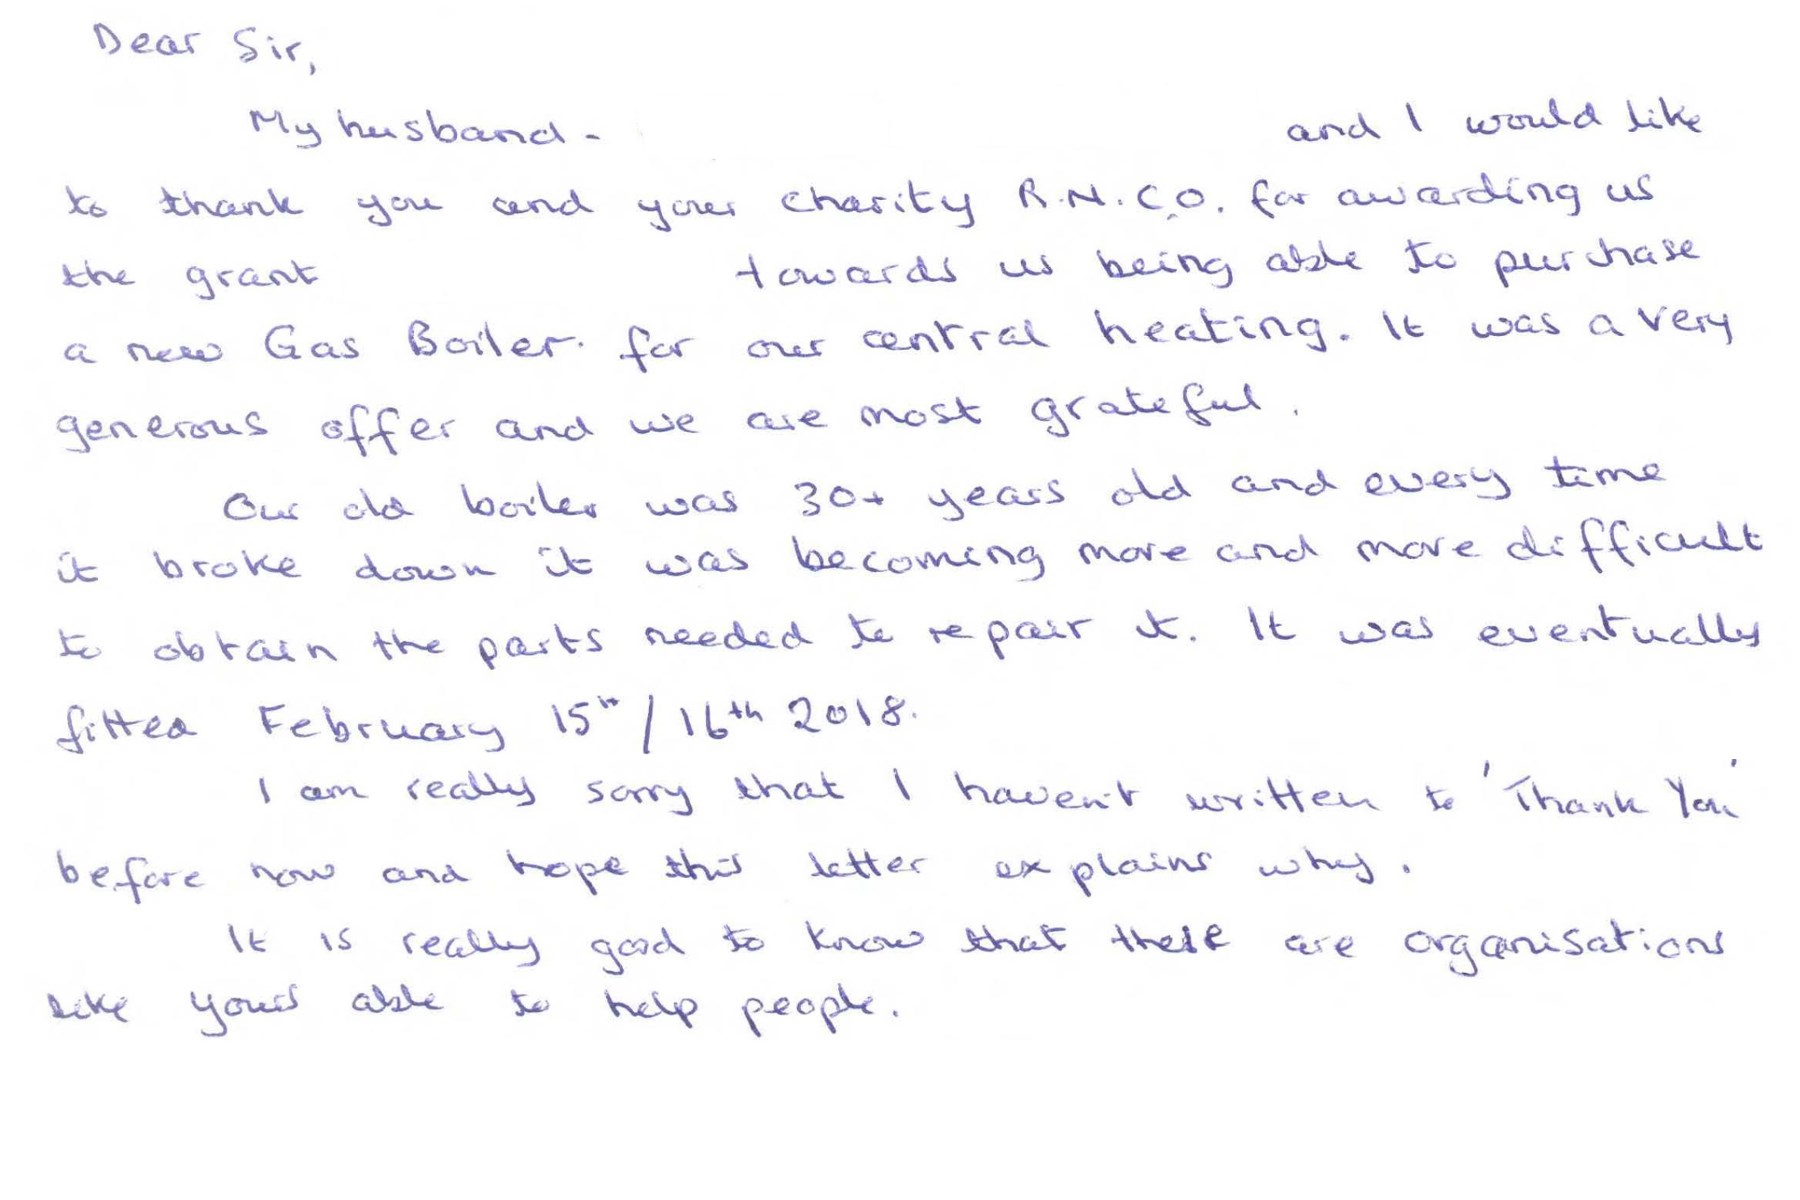 Dear Sir,
My husband - and I would like
to thank you and your charity R.N.C.O. for awarding us
the grant towards us being able to purchase
a new Gas Boiler. for our central heating. It was a very
generous offer and we are most grateful.
Our old boiler was 30+ years old and every time
it broke down it was becoming more and more difficult
to obtain the parts needed to repair it. It was eventually
fitted February 15th/16th 2018.
I am really sorry that I haven't written to 'Thank You'
before now and hope this letter explains why.
It is really good to know that there are organisations
like yours able to help people.